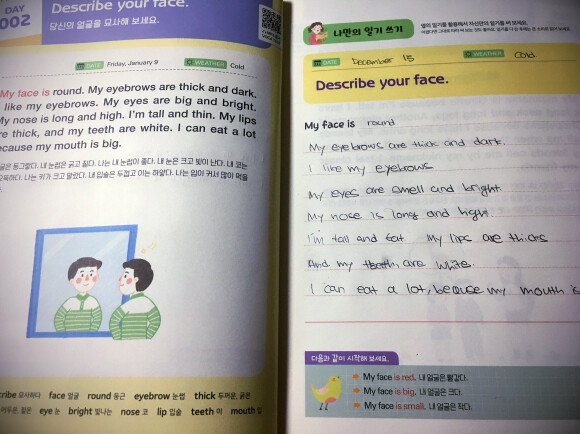 DAY
002
Describe your face.
당신의 얼굴을 묘사해 보세요.
DATE Friday, January 9 WEATHER Cold
My face is round. My eyebrows are thick and dark.
like my eyebrows. My eyes are big and bright.
My nose is long and high. I'm tall and thin. My lips
re thick, and my teeth are white. I can eat a lot
ecause my mouth is big.
굴은 둥그렇다. 내 눈썹은 굵고 짙다. 나는 내 눈썹이 좋다. 내 눈은 크고 빛이 난다. 내 코는
뚝하다. 나는 키가 크고 말랐다. 내 입술은 두껍고 이는 하얗다. 나는 입이 커서 많이 먹을
cribe 묘사하다 face 얼굴 round 둥근 eyebrow 눈썹 thick 두꺼운, 굵은
어두운, 짙은 eye 눈 bright 빛나는 nose 코 lip 입술 teeth 이 mouth 입
나만의 일기 쓰기
옆의 일기를 활용해서 자신만의 일기를 써 보세요.
DATE December 15 WEATHER Cold
Describe your face.
My face is round
My eyebrows are thick and dark.
I like my eyebrows
My eyes are smell and bright.
My nose is long and hight.
I'm tall and fat My lips are thicts
And my teeth, are white.
I can eat a lot, beouse my mouth is
다음과 같이 시작해 보세요.
My face is red. 내 얼굴은 빨갛다.
My face is big. 내 얼굴은 크다.
My face is small. 내 얼굴은 작다.